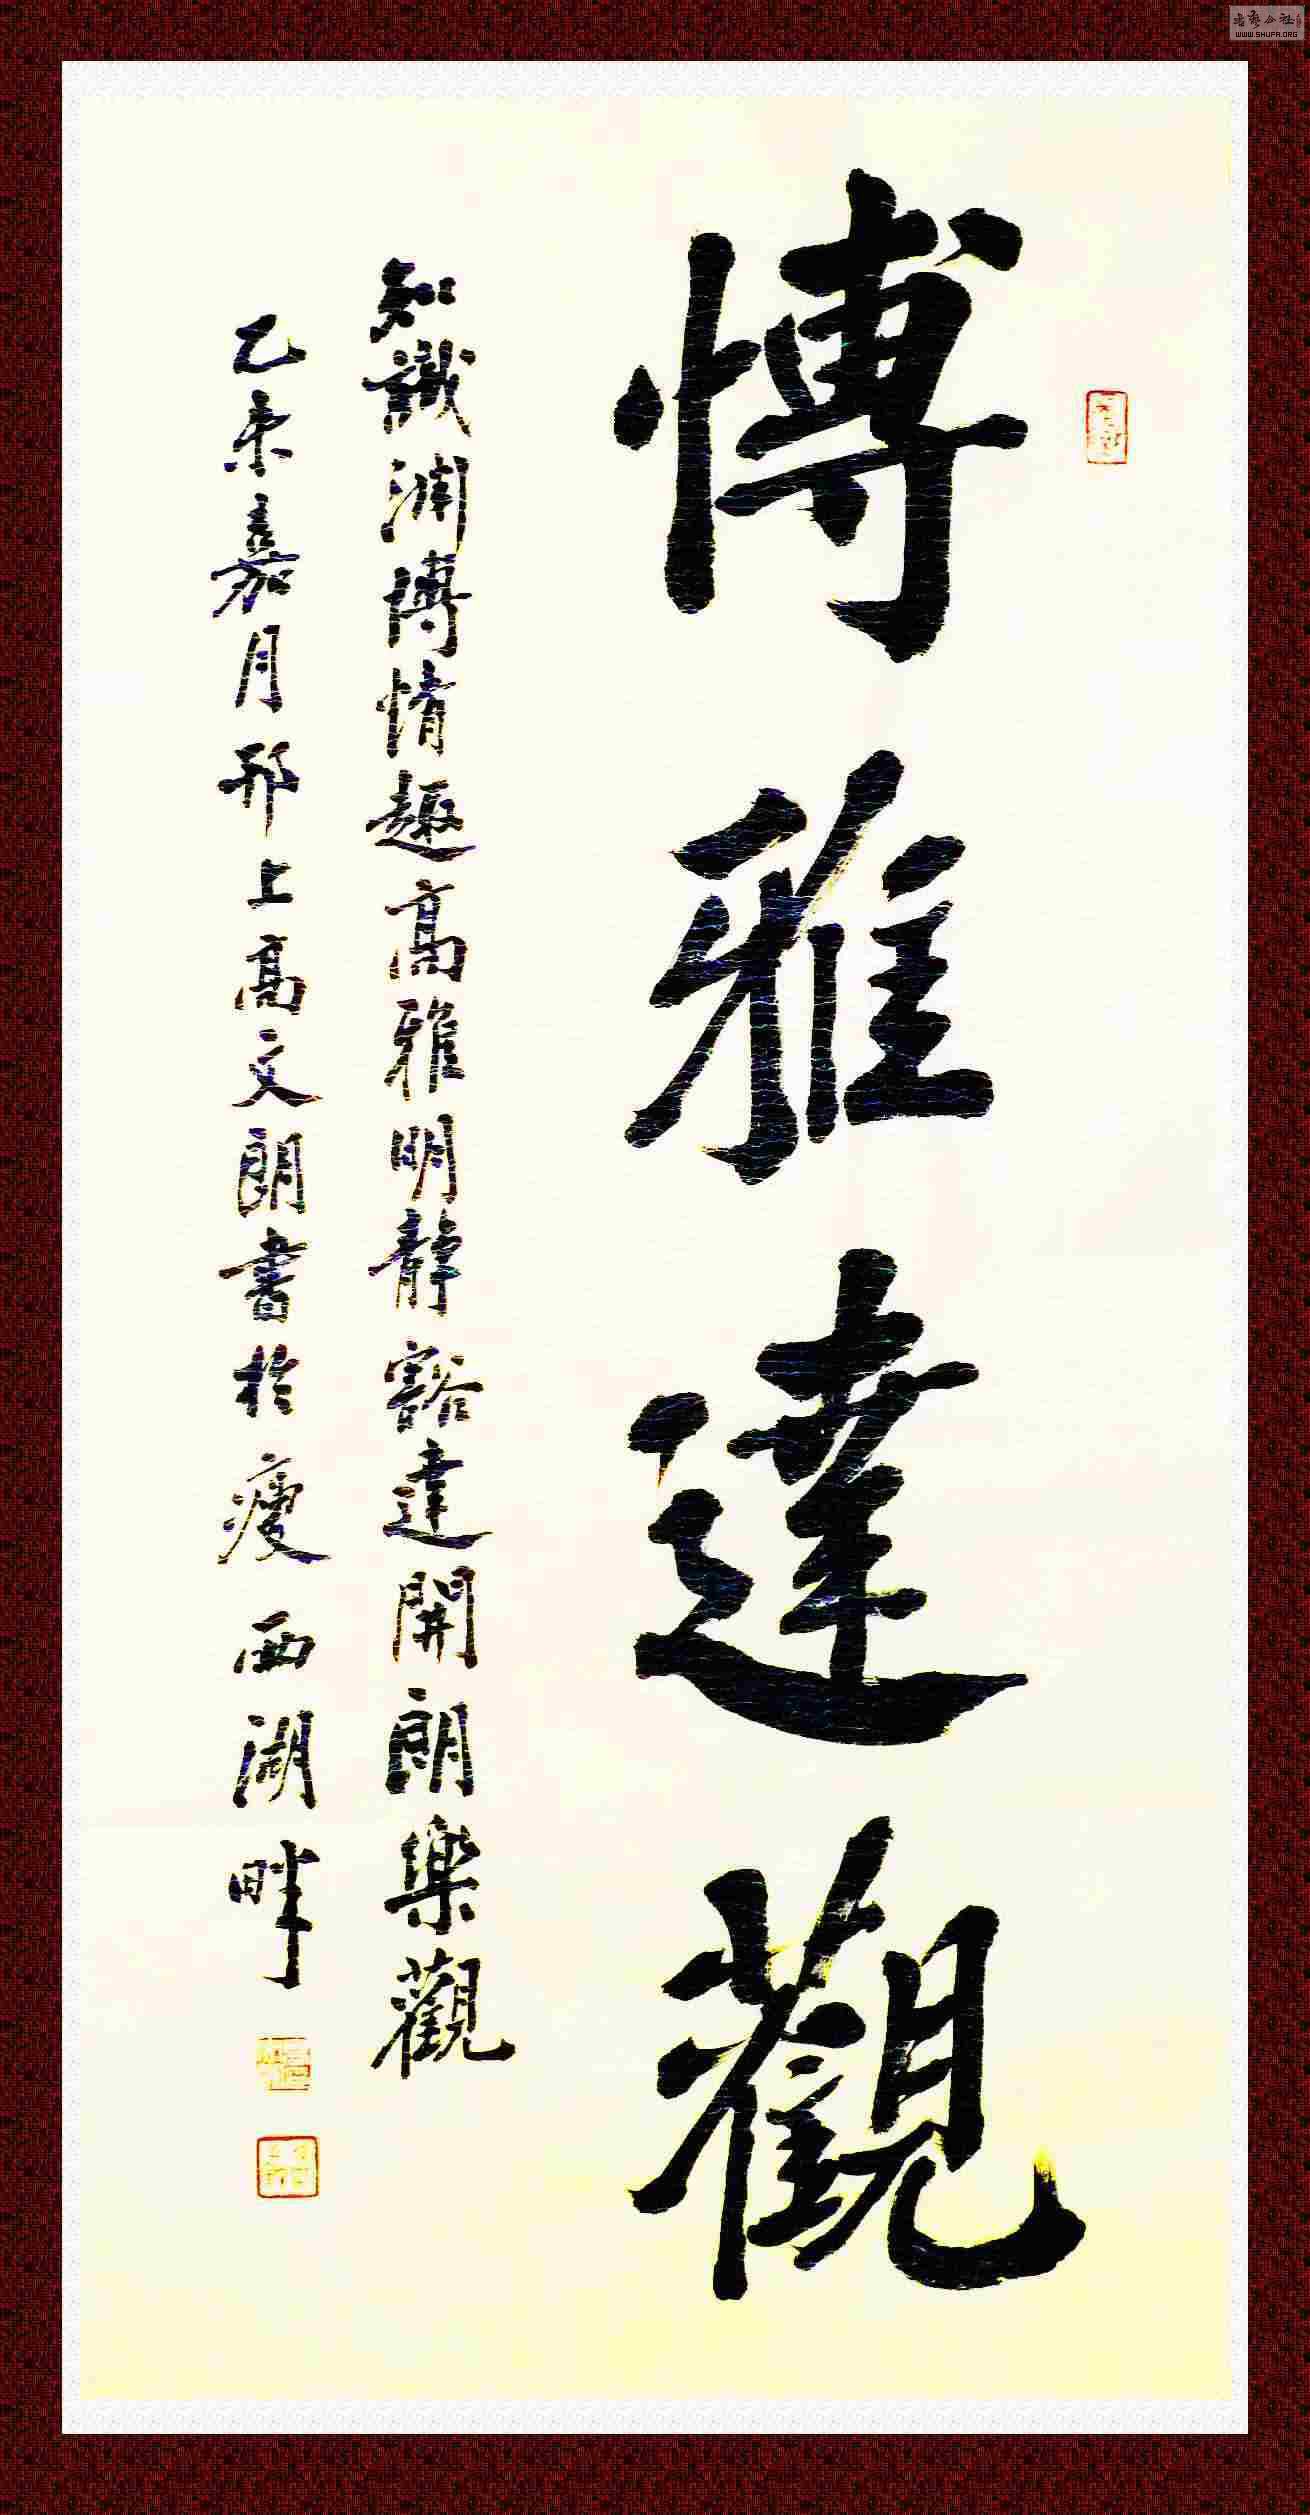 博雅達觀
知識淵博情趣高雅明靜豁達開朗樂觀
乙未嘉月邗上高文朗書於瘦西湖畔
WWW.SHUFA.ORG